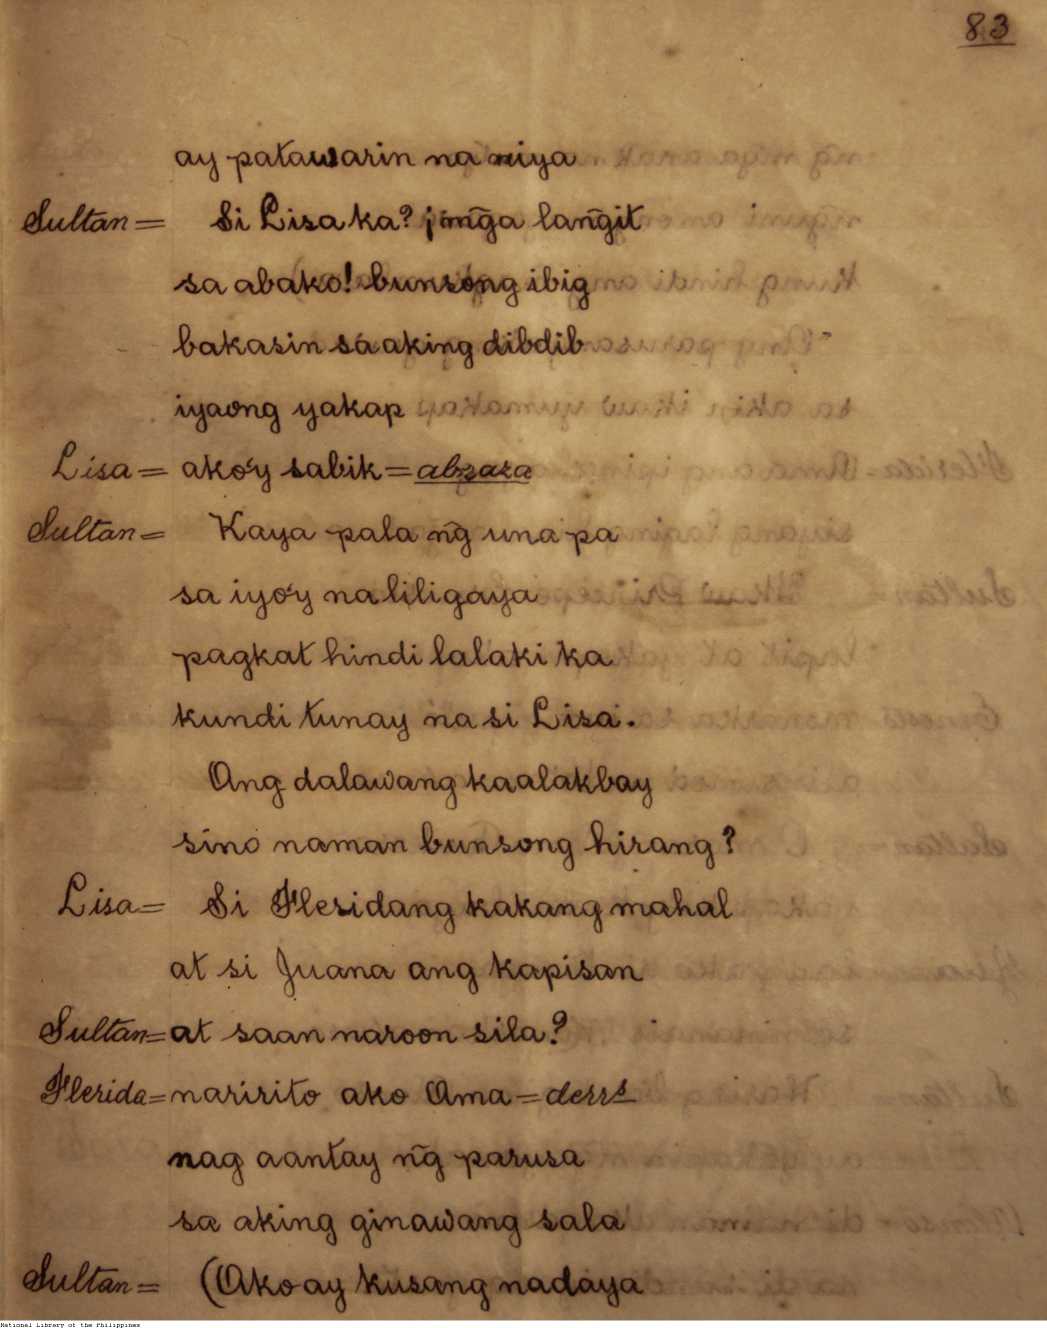 83
ay patawarin na niya
Sultan= Si Lisa ka? ¡mg̃a lang̃it
sa abako! bunsong ibig
bakasin sa aking dibdib
iyaong yakap
Lisa= ako'y sabik= abraza
Sultan= Kaya pala ng̃ una pa
sa iyo'y naliligaya
pagkat hindi lalaki ka
kundi tunay na si Lisa.
Ang dalawang kaalakbay
sino naman bunsong hirang?
Lisa= Si Fleridang kakang mahal
at si Juana ang kapisan
Sultan= at saan naroon sila?
Flerida= naririto ako Ama=
nag aantay ng̃ parusa
sa aking ginawang sala
Sultan= (Ako ay kusang nadaya
National Library of the Philippines